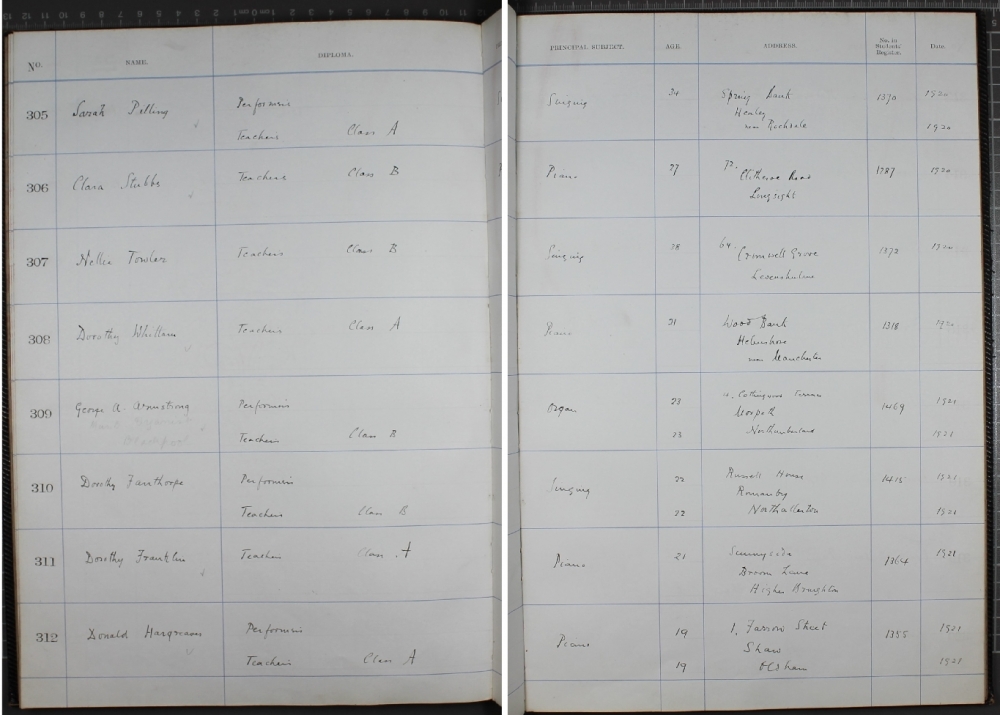 No. NAME. DIPLOMA. PRINCIPAL SUBJECT. AGE. ADDRESS. No. in Students' Register. Date.
305 Sarah Pilling Performers Singing 34 Spring Bank 1370 1920
Healey
Teachers Class A near Rochdale 1920
306 Clara Stubbs Teachers Class B Piano 27 72. Clitheroe Road 1387 1920
Longsight
307 Nellie Fowler Teachers Class B Singing 38 64. Cromwell Grove 1373 1920
Levenshulme
308 Dorothy Whittam Teachers Class A Piano 21 Wood Bank 1318 1920
Helmshore
near Manchester
309 George A. Armstrong Performers Organ 23 Cottingwood Terrace 1409 1921
Blackpool Morpeth
Teachers Class B 23 Northumberland 1921
310 Dorothy Fanthorpe Performers Singing 22 Russell House 1415 1921
Romanby
Teachers Class B 22 Northallerton 1921
311 Dorothy Franklin Teachers Class A Piano 21 Sunnyside 1364 1921
Broom Lane
Higher Broughton
312 Donald Hargreaves Performers Piano 19 1, Farrow Street 1355 1921
Shaw
Teachers Class A 19 Oldham 1921